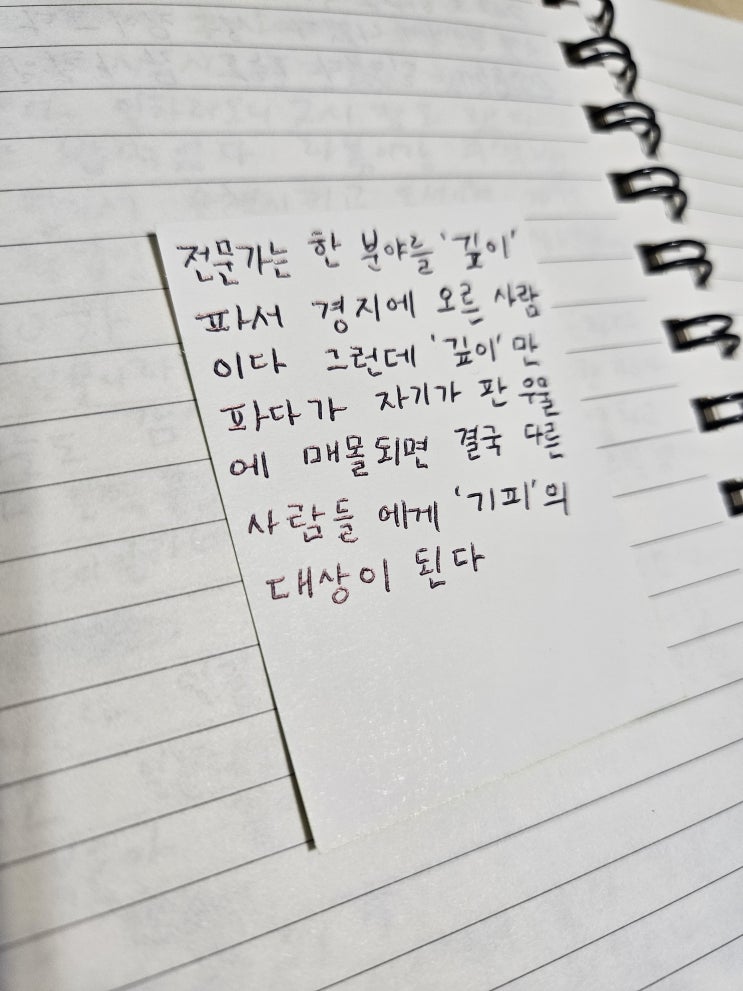 전문가는 한 분야를 '깊이'
파서 경지에 오른 사람
이다 그런데 '깊이'만
파다가 자기가 판 우물
에 매몰되면 결국 다른
사람들에게 '기피'의
대상이 된다